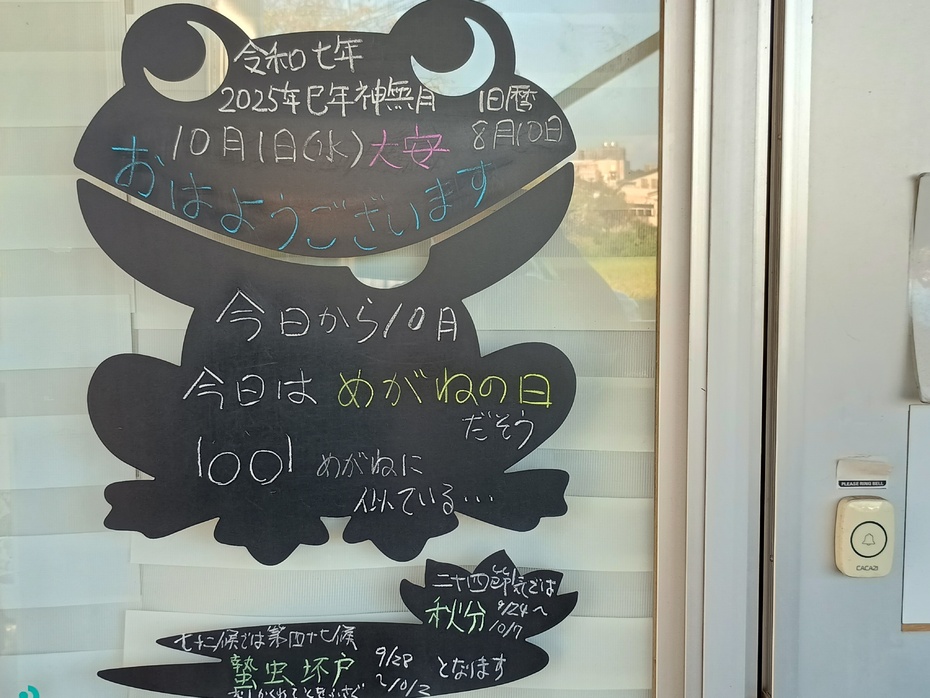 令和七年
2025年巳年神無月
旧暦
8月10日
10月1日(水)大安
おはようございます
今日から10月
今日は めがねの日
だそう
1001 めがねに
似ている…
二十四節気では
秋分 9/24〜
10/7
七十二候では第四十七候
蟄虫坏戸 9/28
〜10/2
となります
PLEASE RING BELL
CACAZI